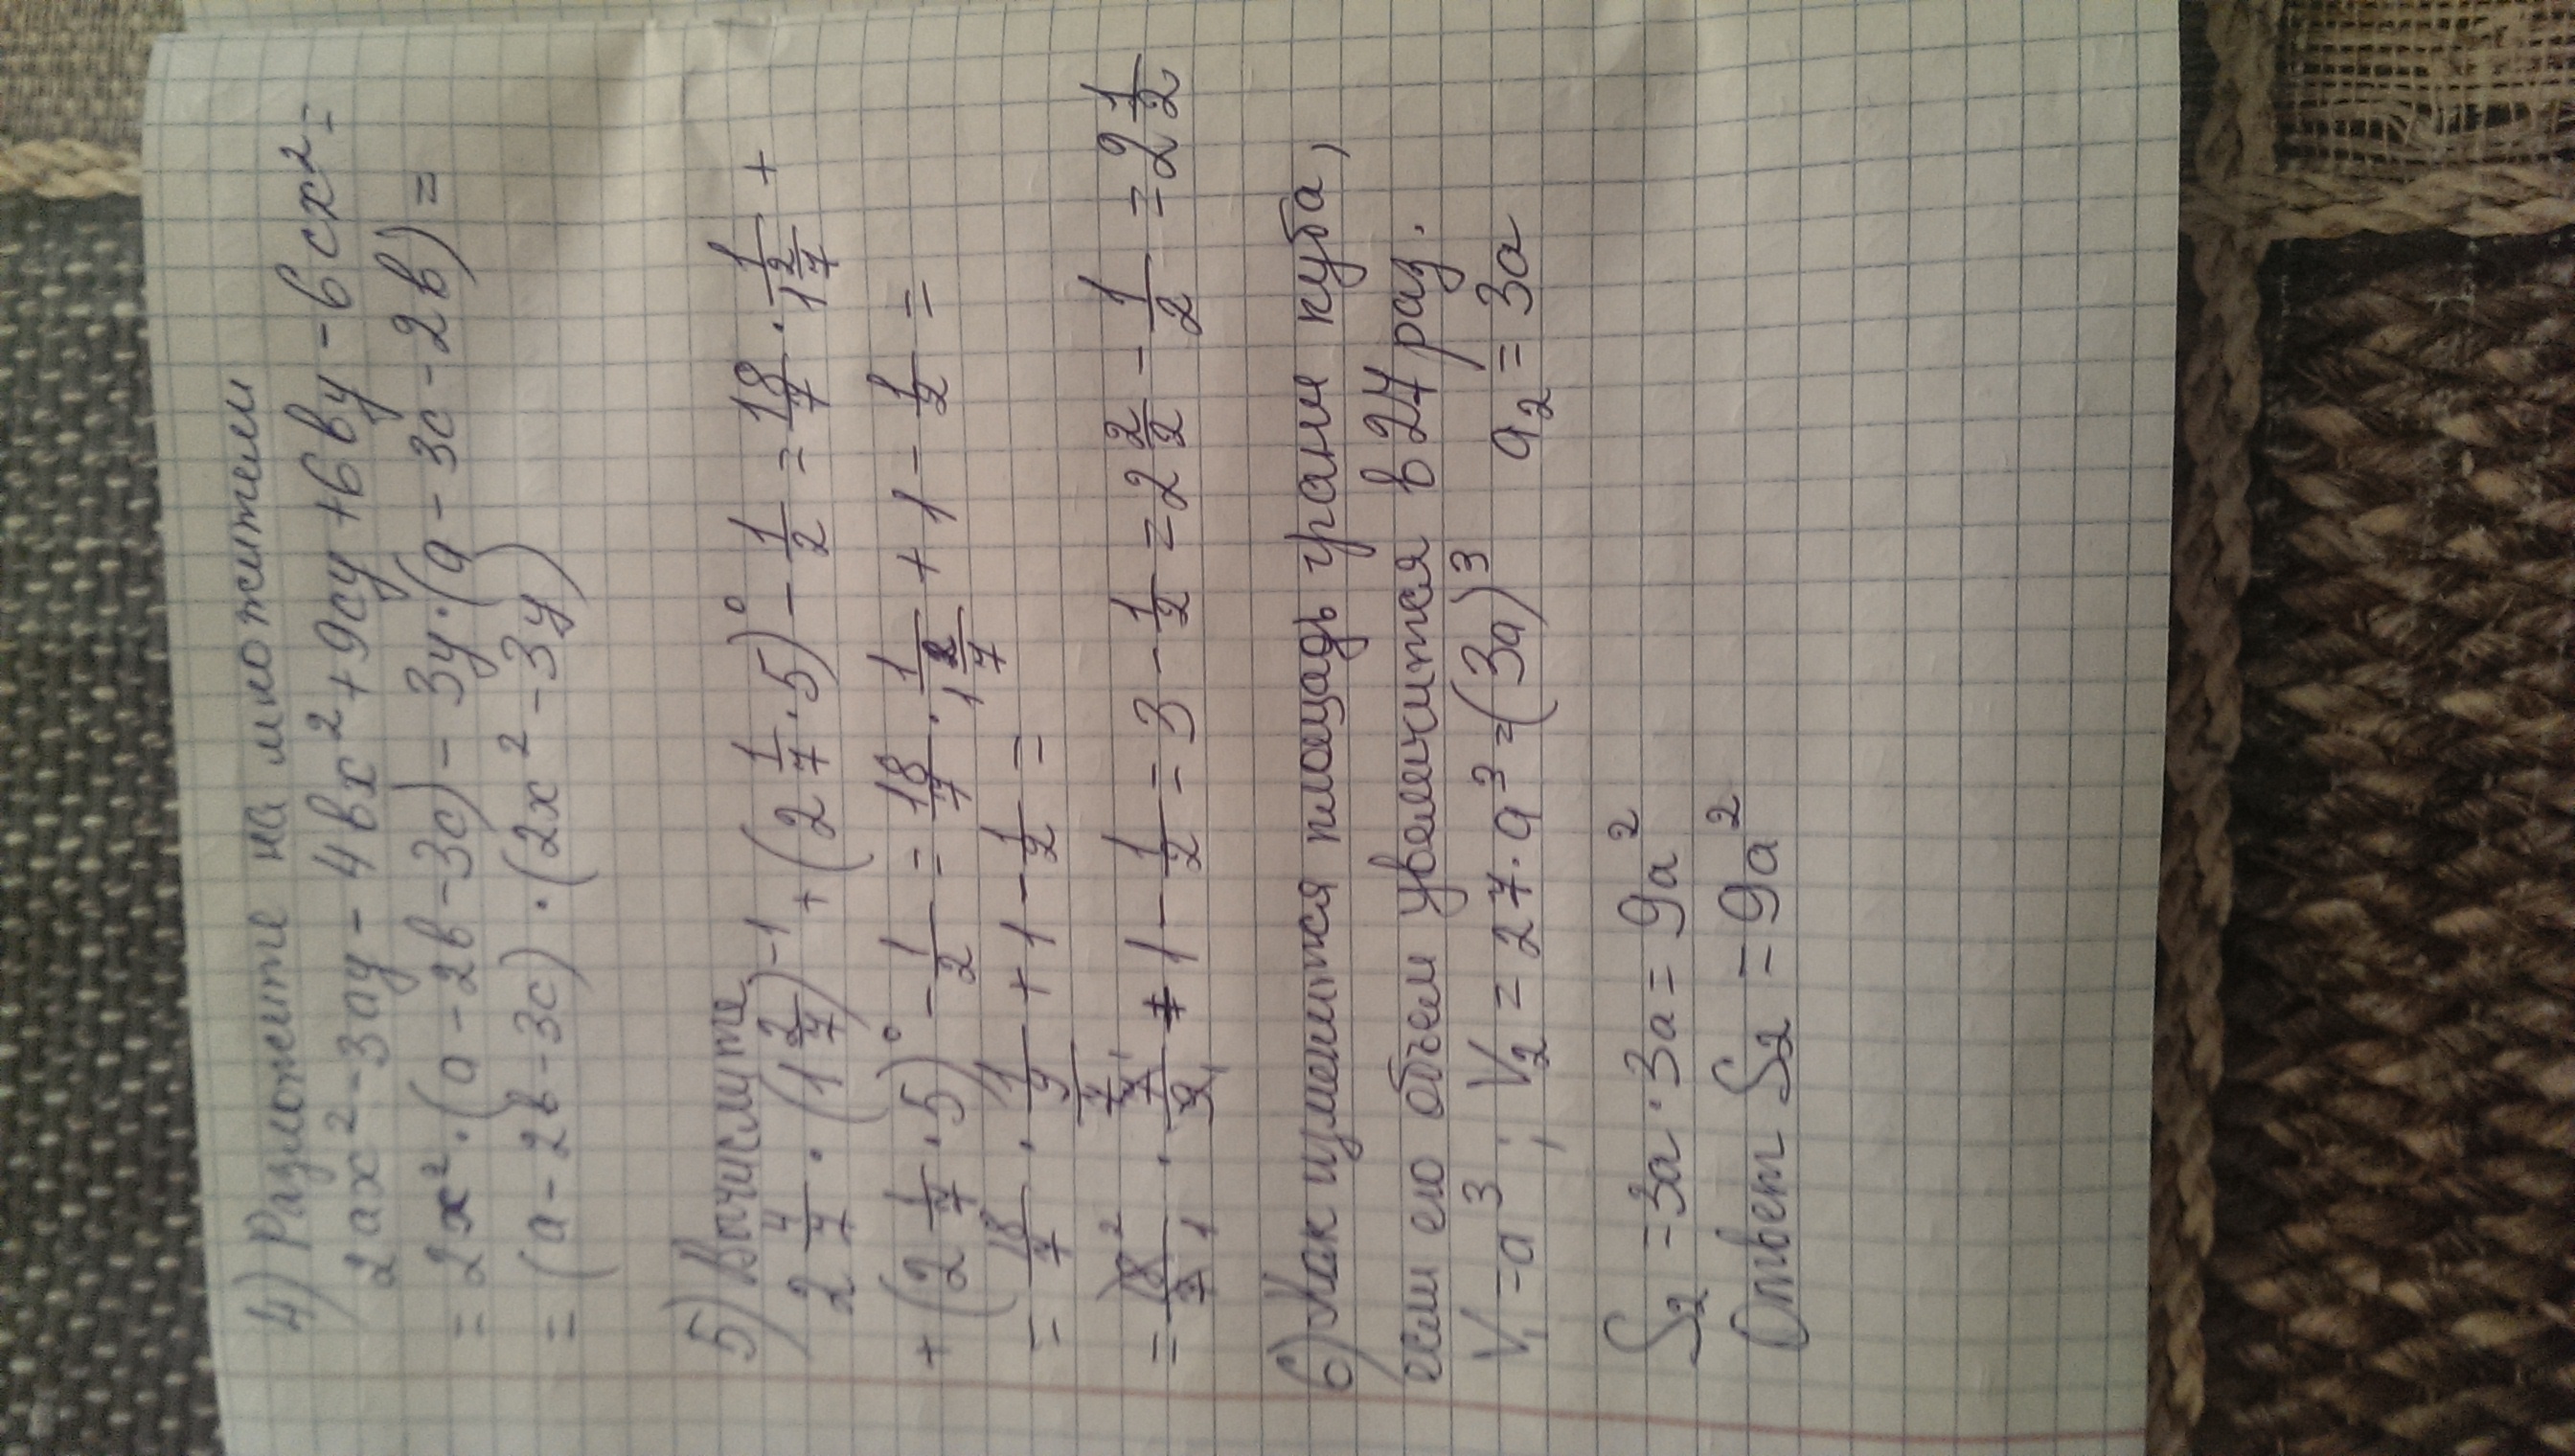 4) Разложите на множители
2ax² - 3ay - 4bx² + 9cy + 6by - 6cx² =
= 2x² · (a - 2b - 3c) - 3y · (a - 3c - 2b) =
= (a - 2b - 3c) · (2x² - 3y)
5) Вычислите
2 4/7 · (1 2/7)⁻¹ + (2 1/7 · 5)⁰ - 1/2 = 18/7 · 1/(1 2/7) +
+ (2 1/7 · 5)⁰ - 1/2 = 18/7 · 1/(1 2/7) + 1 - 1/2 =
= 18/7 · 1/(9/7) + 1 - 1/2 =
= 18²/7₁ · 7¹/9₁ + 1 - 1/2 = 3 - 1/2 = 2 2/2 - 1/2 = 2 1/2
6) Как изменится площадь грани куба,
если его объем увеличится в 27 раз.
V₁ = a³; V₂ = 27 · a³ = (3a)³ a₂ = 3a
S₂ = 3a · 3a = 9a²
Ответ S₂ = 9a²